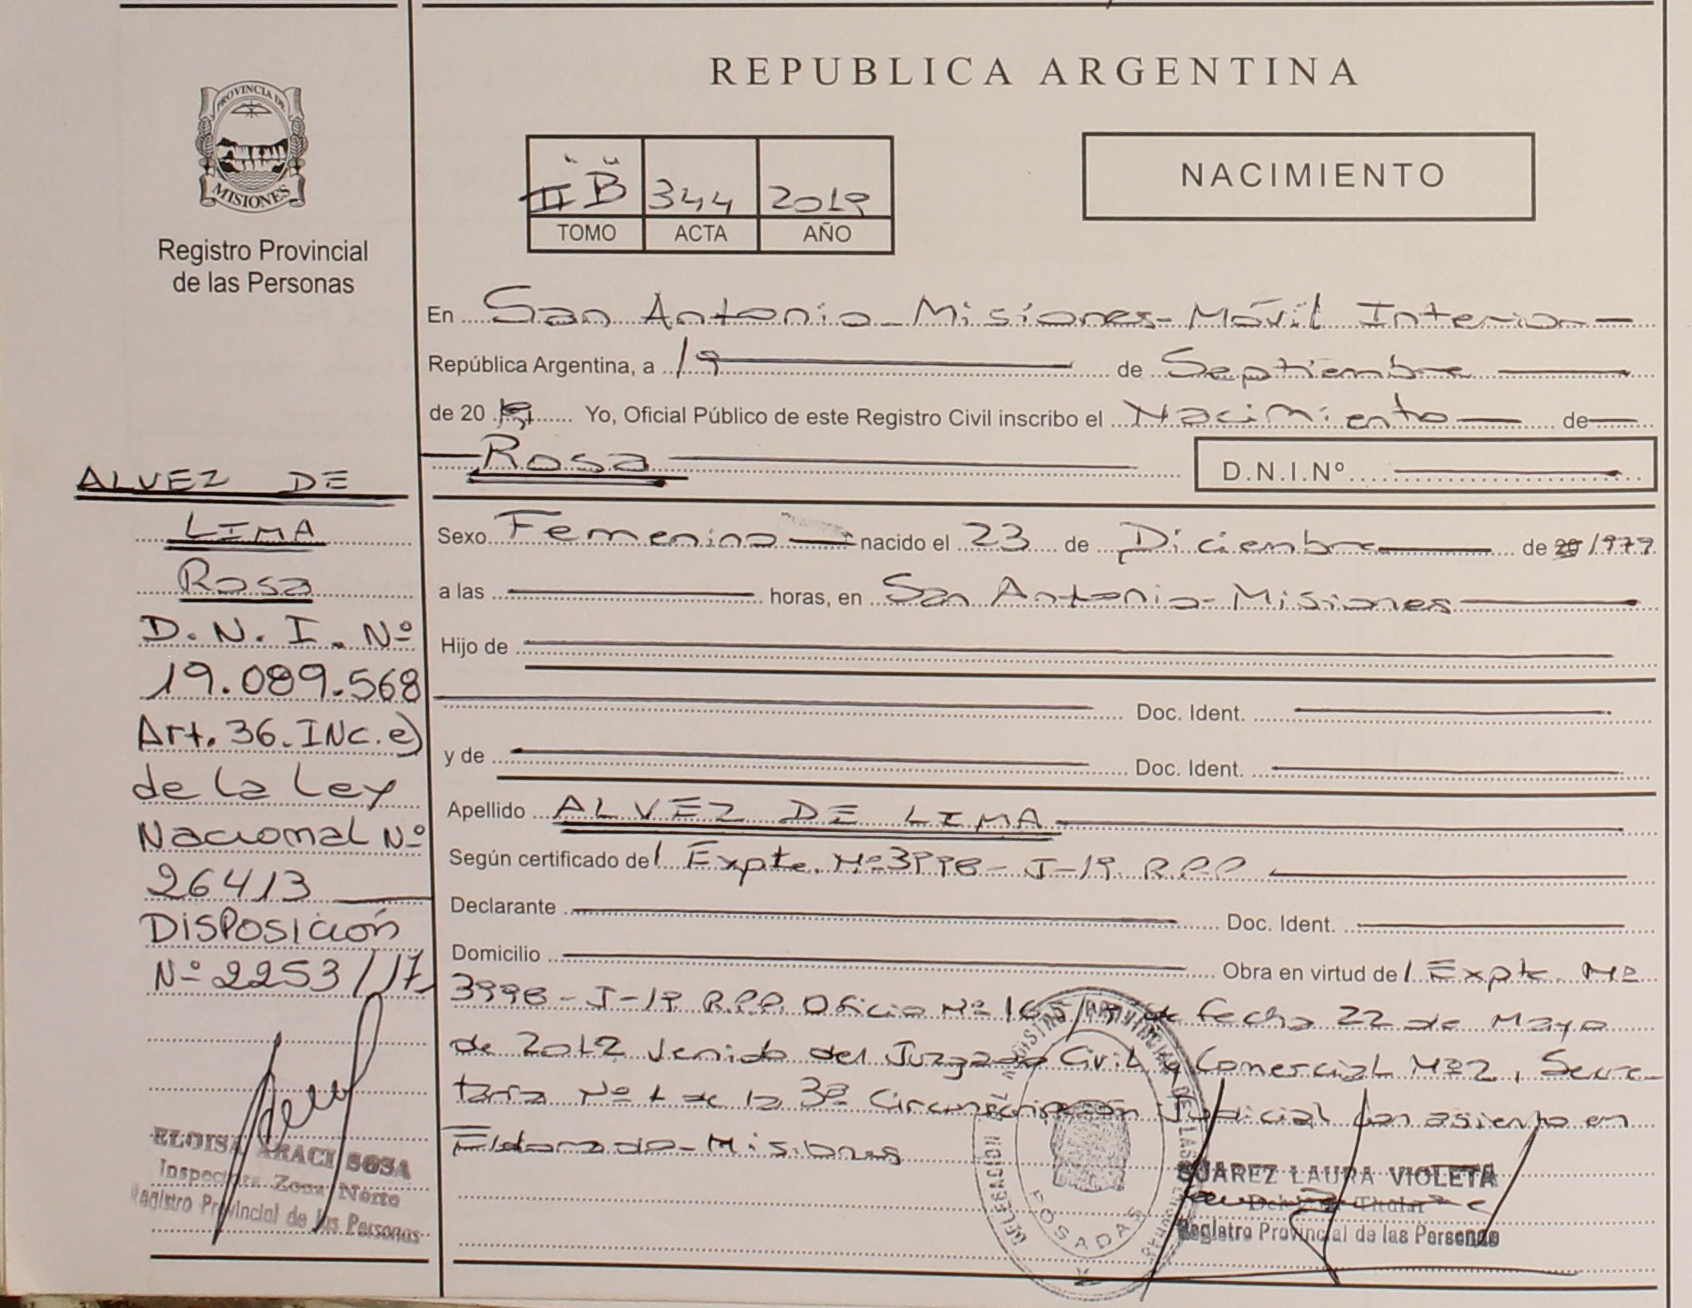 REPUBLICA ARGENTINA
PROVINCIA DE
MISIONES
Registro Provincial
de las Personas
II B 344 2019
TOMO ACTA AÑO
NACIMIENTO
En San Antonio - Misiones - Móvil Interior
República Argentina, a 19 de Septiembre
de 20 19 Yo, Oficial Público de este Registro Civil inscribo el Nacimiento de
Rosa D.N.I.Nº
Sexo Femenino nacido el 23 de Diciembre de 1979
a las horas, en San Antonio - Misiones
Hijo de
Doc. Ident.
y de Doc. Ident.
Apellido ALVEZ DE LIMA
Según certificado del Expte. Nº 3998 - J - 19. R.P.P
Declarante Doc. Ident.
Domicilio Obra en virtud del Expte. Nº
3998 - J - 19 R.P.P Oficio Nº 165/ de fecha 22 de Mayo
de 2012 venido del Juzgado Civil y Comercial Nº 2, Secre-
taria Nº 1 de la 3ª Circunscripcion Judicial con asiento en
Eldorado - Misiones
ALVEZ DE
LIMA
Rosa
D.N.I. Nº
19.089.568
Art. 36. INc. e)
de la Ley
Nacional Nº
26413
DISPosición
Nº 2253/17
ELOISA ARACI SOSA
Inspectora Zona Norte
Registro Provincial de las Personas
POSADAS
SUAREZ LAURA VIOLETA
Titular
Registro Provincial de las Personas